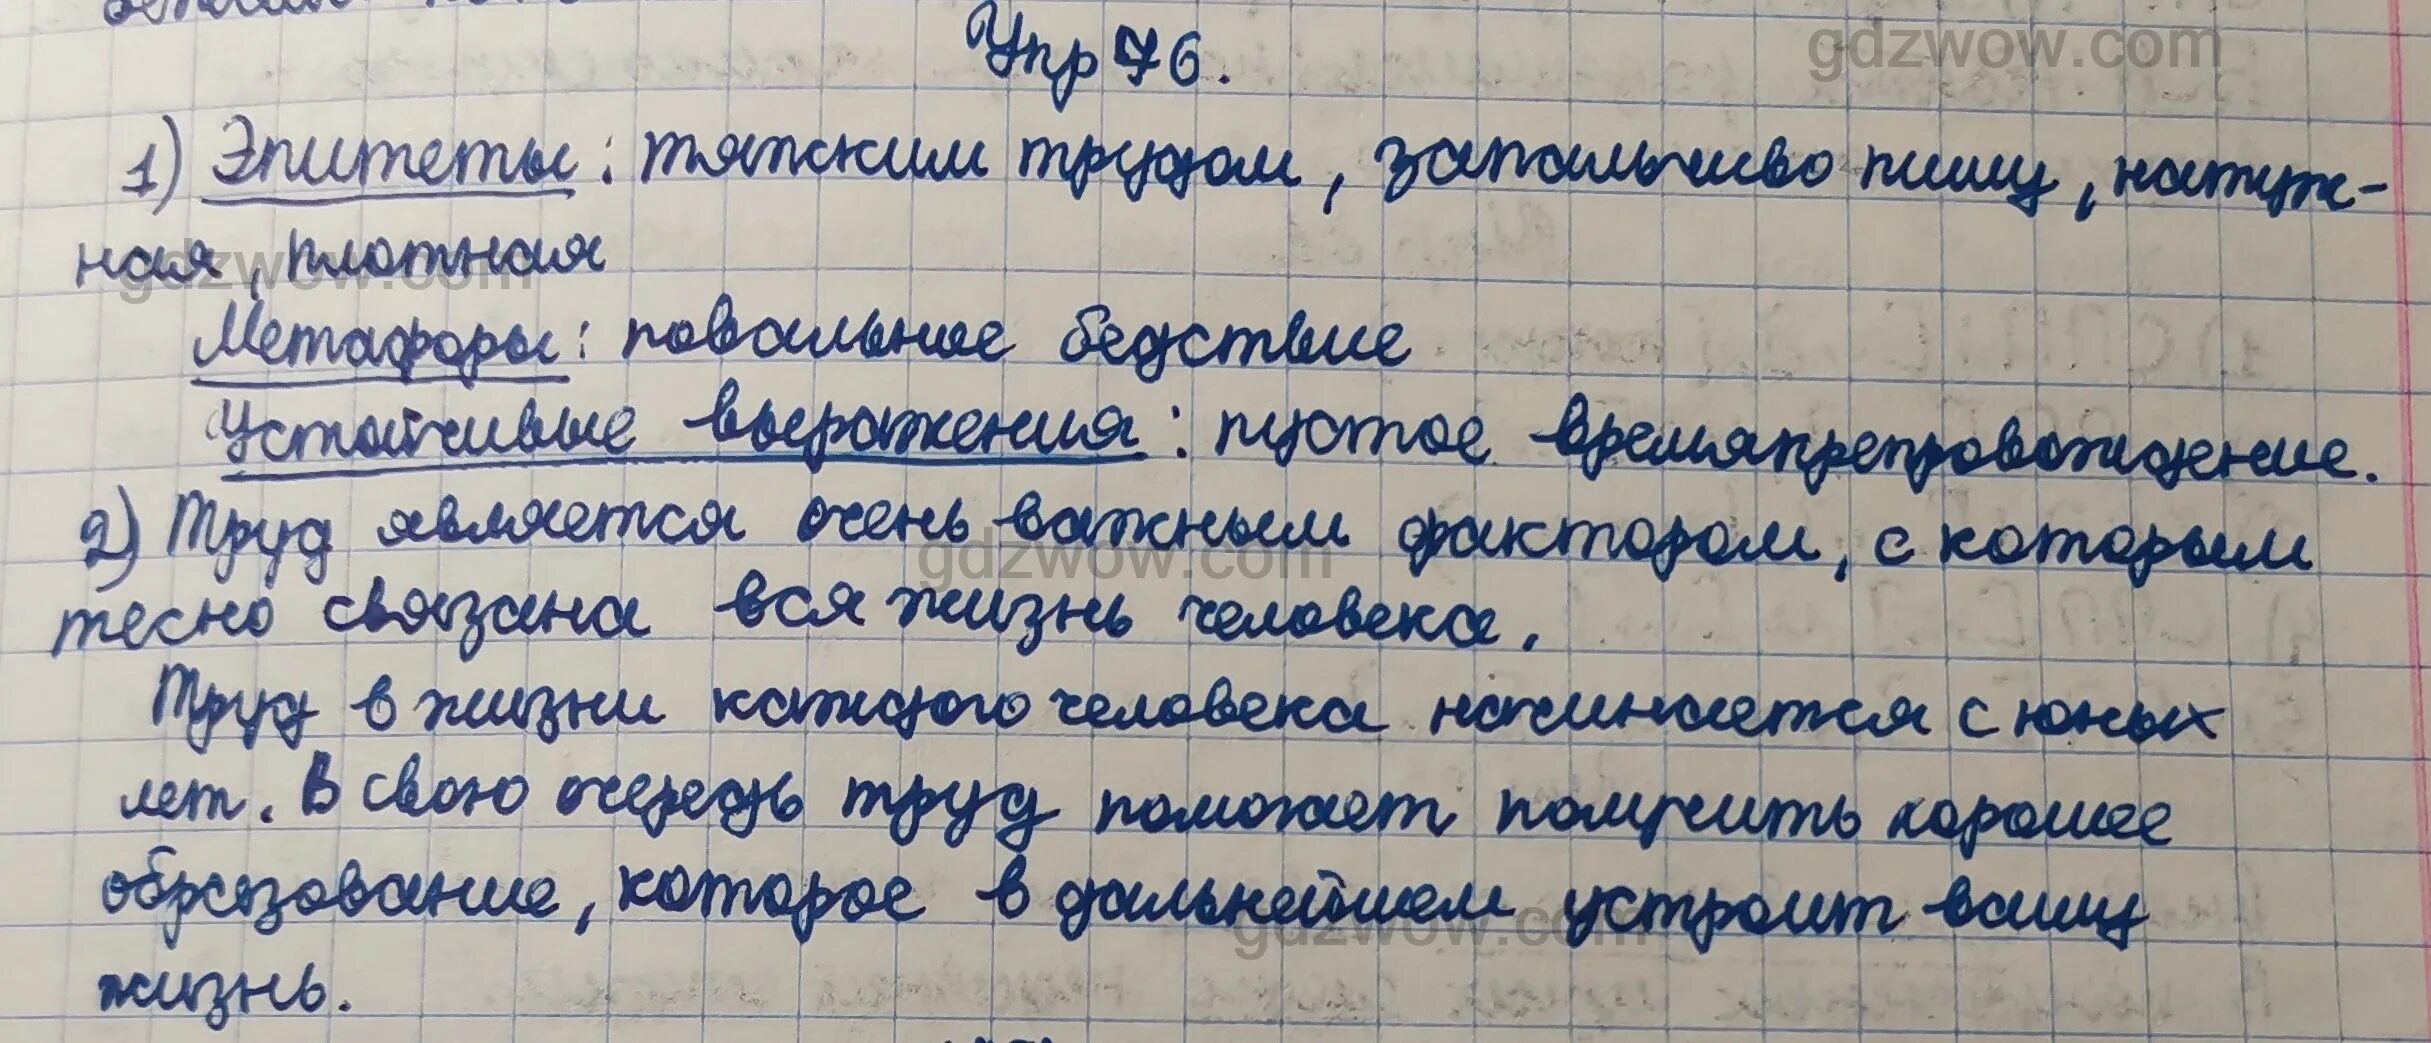 Упр 76.
gdzwow.com
1) Эпитеты: тяжким трудом, запальчиво пишу, натуж-
ная, плотная
gdzwow.com
Метафоры: повальное бедствие
Устойчивые выражения: пустое времяпрепровождение.
2) Труд является очень важным фактором, с которым
gdzwow.com
тесно связана вся жизнь человека.
Труд в жизни каждого человека начинается с юных
лет. В свою очередь труд поможет получить хорошее
образование, которое в дальнейшем устроит вашу
gdzwow.com
жизнь.